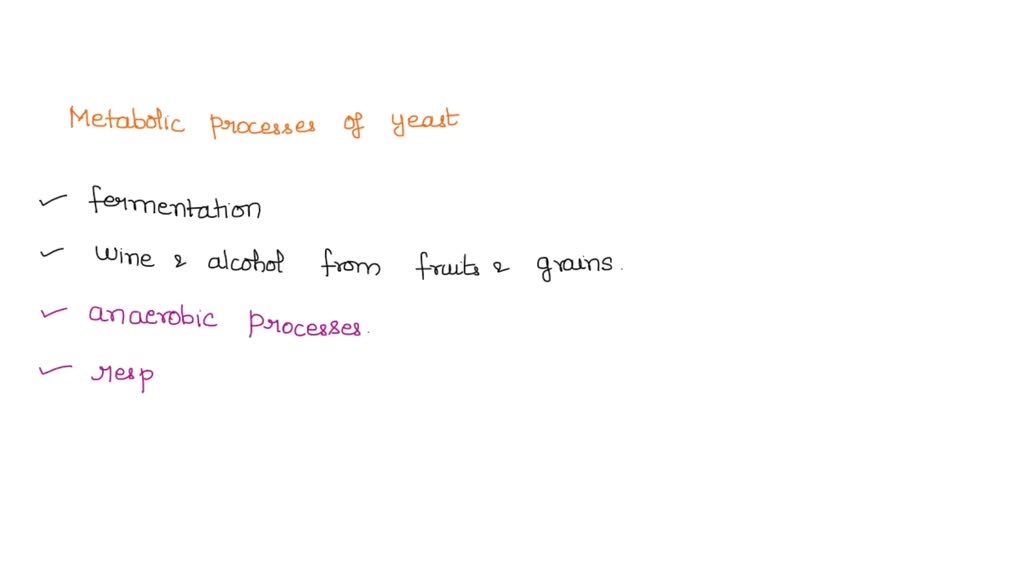 Metabolic processes of yeast
✓ fermentation
✓ wine & alcohol from fruits & grains.
✓ anaerobic processes.
✓ resp